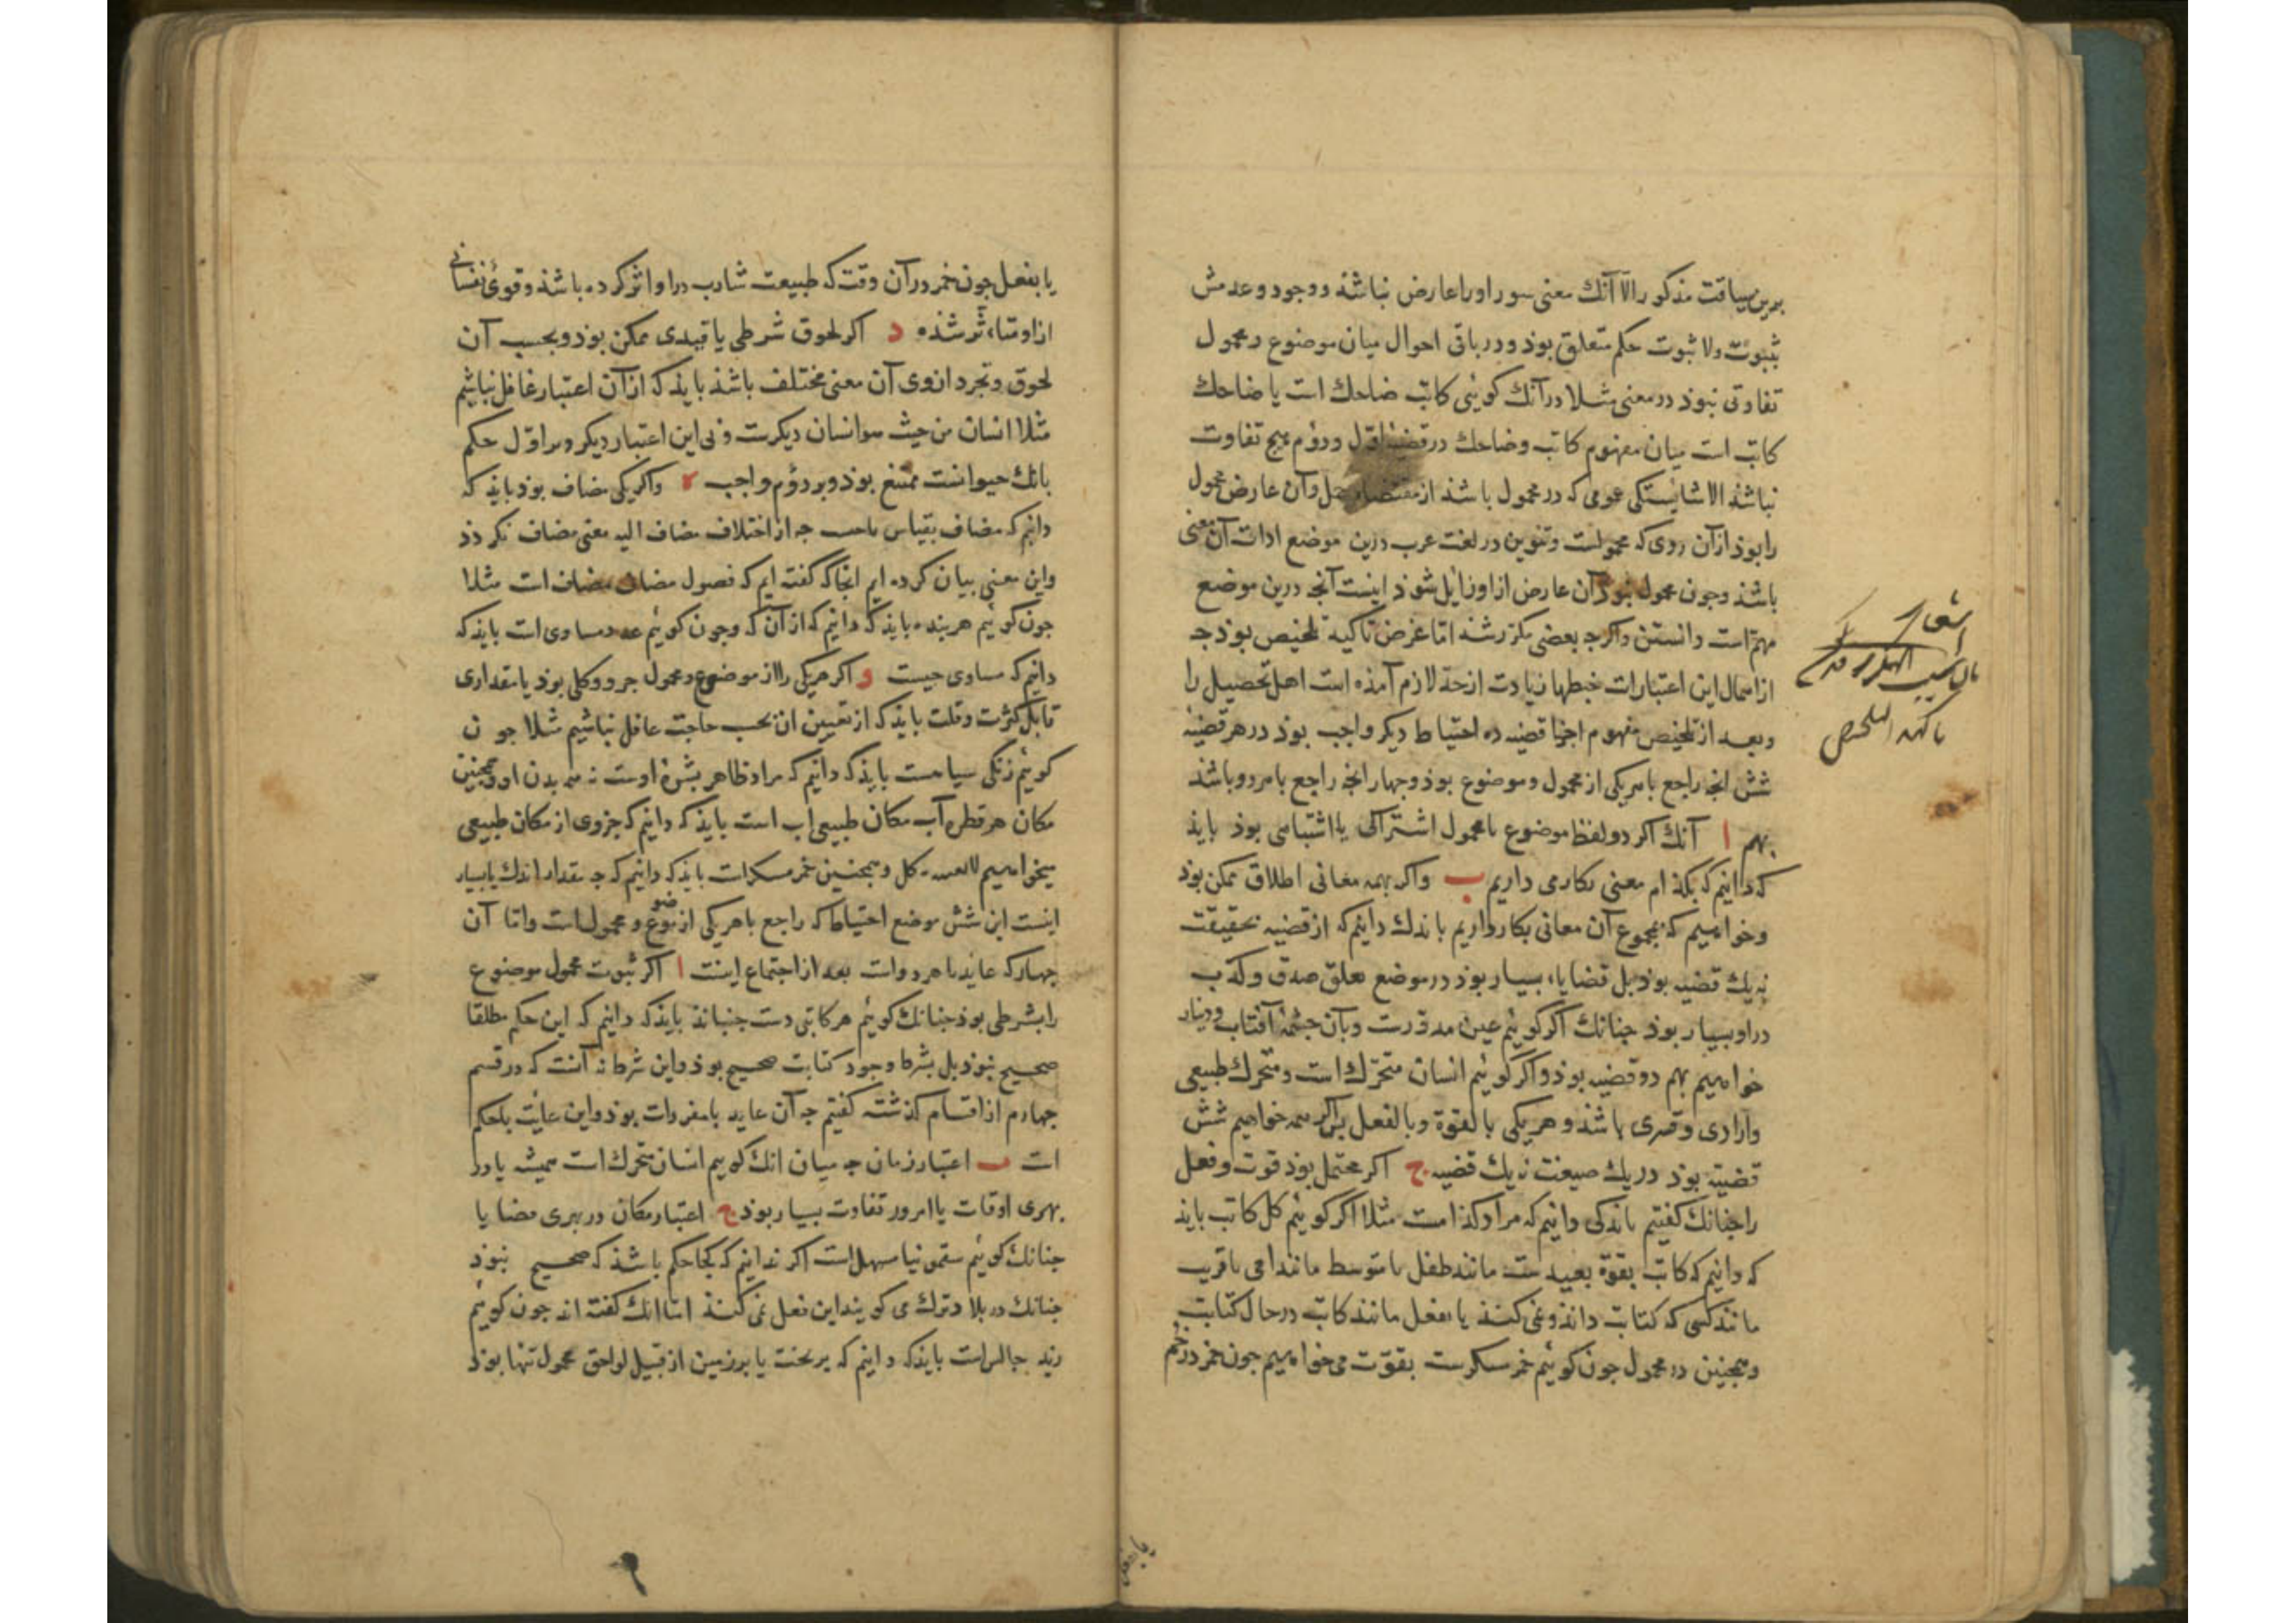 برین سیاقت مذکور الا آنك معنی سور او را عارض نباشذ و وجود و عدمش
بثبوت ولا ثبوت حکم متعلق بوذ و در باقی احوال میان موضوع و محمول
تفاوتی نبوذ در معنی مثلا در آنك کوئیی کاتب ضاحك است یا ضاحك
کاتب است میان مفهوم کاتب و ضاحك در قضیۀ اول و دوم هیچ تفاوت
نباشذ الا شایستکی عمومی که در محمول باشذ از مقتضاء حمل و آن عارض محمول
را بوذ از آن روی که محمولست و تنوین در لغت عرب درین موضع ادات آن معنی
باشذ وجون محمول نبوذ آن عارض ازاو زایل شوذ اینست آنجه درین موضع
مهم است دانستن و اکرجه بعضی مکرر شذ اما غرض تاکید تلخیص بوذ جه
از اهمال این اعتبارات خبطها زیادت از حد لازم آمذه است اهل تحصیل را
وبعد از تلخیص مفهوم اجزا قضیه ده احتیاط دیکر واجب بوذ در هر قضیۀ
شش انجه راجع با هر یکی از محمول و موضوع بوذ و جهار انجه راجع با هر دو باشذ
بهم ا آنك اکر دو لفظ موضوع یا محمول اشتراکی یا اشتباهی بوذ بایذ
که دانیم که بکذام معنی بکار می داریم ب واکر بهمه معانی اطلاق ممکن بوذ
وخواهیم که مجموع آن معانی بکار داریم بایذك دانیم که از قضیه بحقیقت
نه یك قضیه بوذ بل قضایاء بسیار بوذ در موضع تعلق صدق و کذب
دراو بسیار بوذ جنانك اکر کوئیم عین مدورست و بآن جشمۀ آفتاب و دینار
خواهیم بهم دو قضیه بوذ و اکر کوئیم انسان متحرك است و متحرك طبیعی
وارادی و قسری باشذ و هر یکی بالقوة و بالفعل بس اکر همه خواهیم شش
قضیه بوذ در یك صیغت نه یك قضیه ج اکر محتمل بوذ قوت و فعل
را جنانك کفتیم بایذکی دانیم که مراد کذامست مثلا اکر کوئیم کل کاتب بایذ
که دانیم که کاتب بقوة بعیدست مانند طفل یا متوسط مانند امی یا قریب
مانند کسی که کتابت داند و نمی کنذ یا بفعل مانند کاتب در حال کتابت
وهمجنین در محمول جون کوئیم خمر مسکرست بقوت می خواهیم جون خمر در خم
یا بفعل
یا بفعل جون خمر در آن وقت که طبیعت شارب دراو اثر کرده باشذ و قوی نفسانی
ازاو متأثر شذه د اکر لحوق شرطی یا قیدی ممکن بوذ و بحسب آن
لحوق و تجرد ازوی آن معنی مختلف باشذ بایذ که از آن اعتبار غافل نباشیم
مثلا انسان من حیث هو انسان دیکرست و بی این اعتبار دیکر و بر اول حکم
بانك حیوانست ممتنع بوذ و بر دوم واجب ه واکر یکی مضاف بوذ بایذ که
دانیم که مضاف بقیاس باجیست جه از اختلاف مضاف الیه معنی مضاف بکردذ
واین معنی بیان کرده ایم انجا که کفته ایم که فصول مضاف مضاف است مثلا
جون کوئیم هر بنده بایذ که دانیم که از آن که وجون کوئیم عدد مساوی است بایذ که
دانیم که مساوی جیست و اکر هر یکی را از موضوع و محمول جزو و کلی بوذ یا مقداری
قابل کثرت و قلت بایذ که از تعیین ان بحسب حاجت غافل نباشیم مثلا جون
کوئیم زنکی سیاهست بایذ که دانیم که مراد ظاهر بشرۀ اوست نه همه بدن او و همجنین
مکان هر قطره آب مکان طبیعی اب است بایذ که دانیم که جزوی از مکان طبیعی
میخواهیم لا بعینه نه کل و همجنین خمر مسکرات بایذ که دانیم که جه مقدار اندك یا بسیار
اینست این شش موضع احتیاط که راجع با هر یکی از موضوع و محمول است واما آن
جهار که عاید با هر دوات بعد از اجتماع اینست ا اکر ثبوت محمول موضوع
را بشرطی بوذ جنانك کوئیم هر کاتبی دست جنبانذ بایذ که دانیم که این حکم مطلقا
صحیح نبوذ بل بشرط وجود کتابت صحیح بوذ و این شرط نه آنست که در قسم
جهارم از اقسام کذشته کفتیم جه آن عاید با مفردات بوذ و این عایدست بلحکم
ات ب اعتبار زمان جه میان انك کوییم انسان متحرك است همیشه یا در
بهری اوقات یا امروز تفاوت بسیار بوذ ج اعتبار مکان در بهری قضایا
جنانك کوئیم سقمونیا مسهل است اکر ندانیم که کجا حکم باشذ که صحیح نبوذ
جنانك در بلاد ترك می کویند این فعل نمی کنذ اما انك کفته اند جون کوئیم
زید جالس است بایذ که دانیم که بر تخت یا بر زمین از قبیل لواحق محمول تنها بوذ